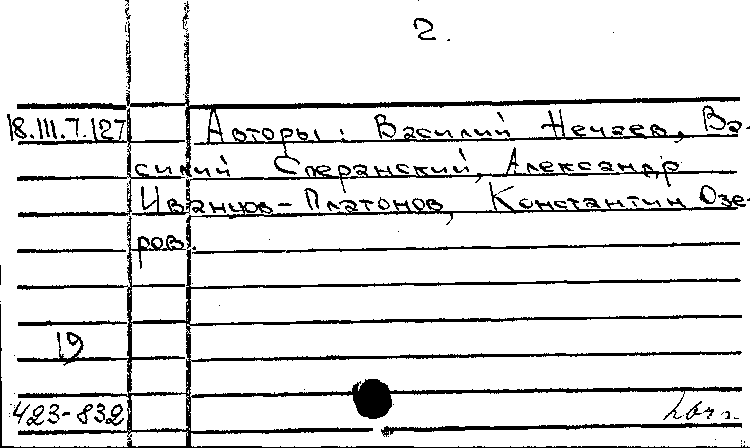 2.
18.III.7.127 Авторы: Василий Нечаев, Ва-
силий Сперанский, Александр
Иванцов-Платонов, Константин Озе-
ров.
19
423-832